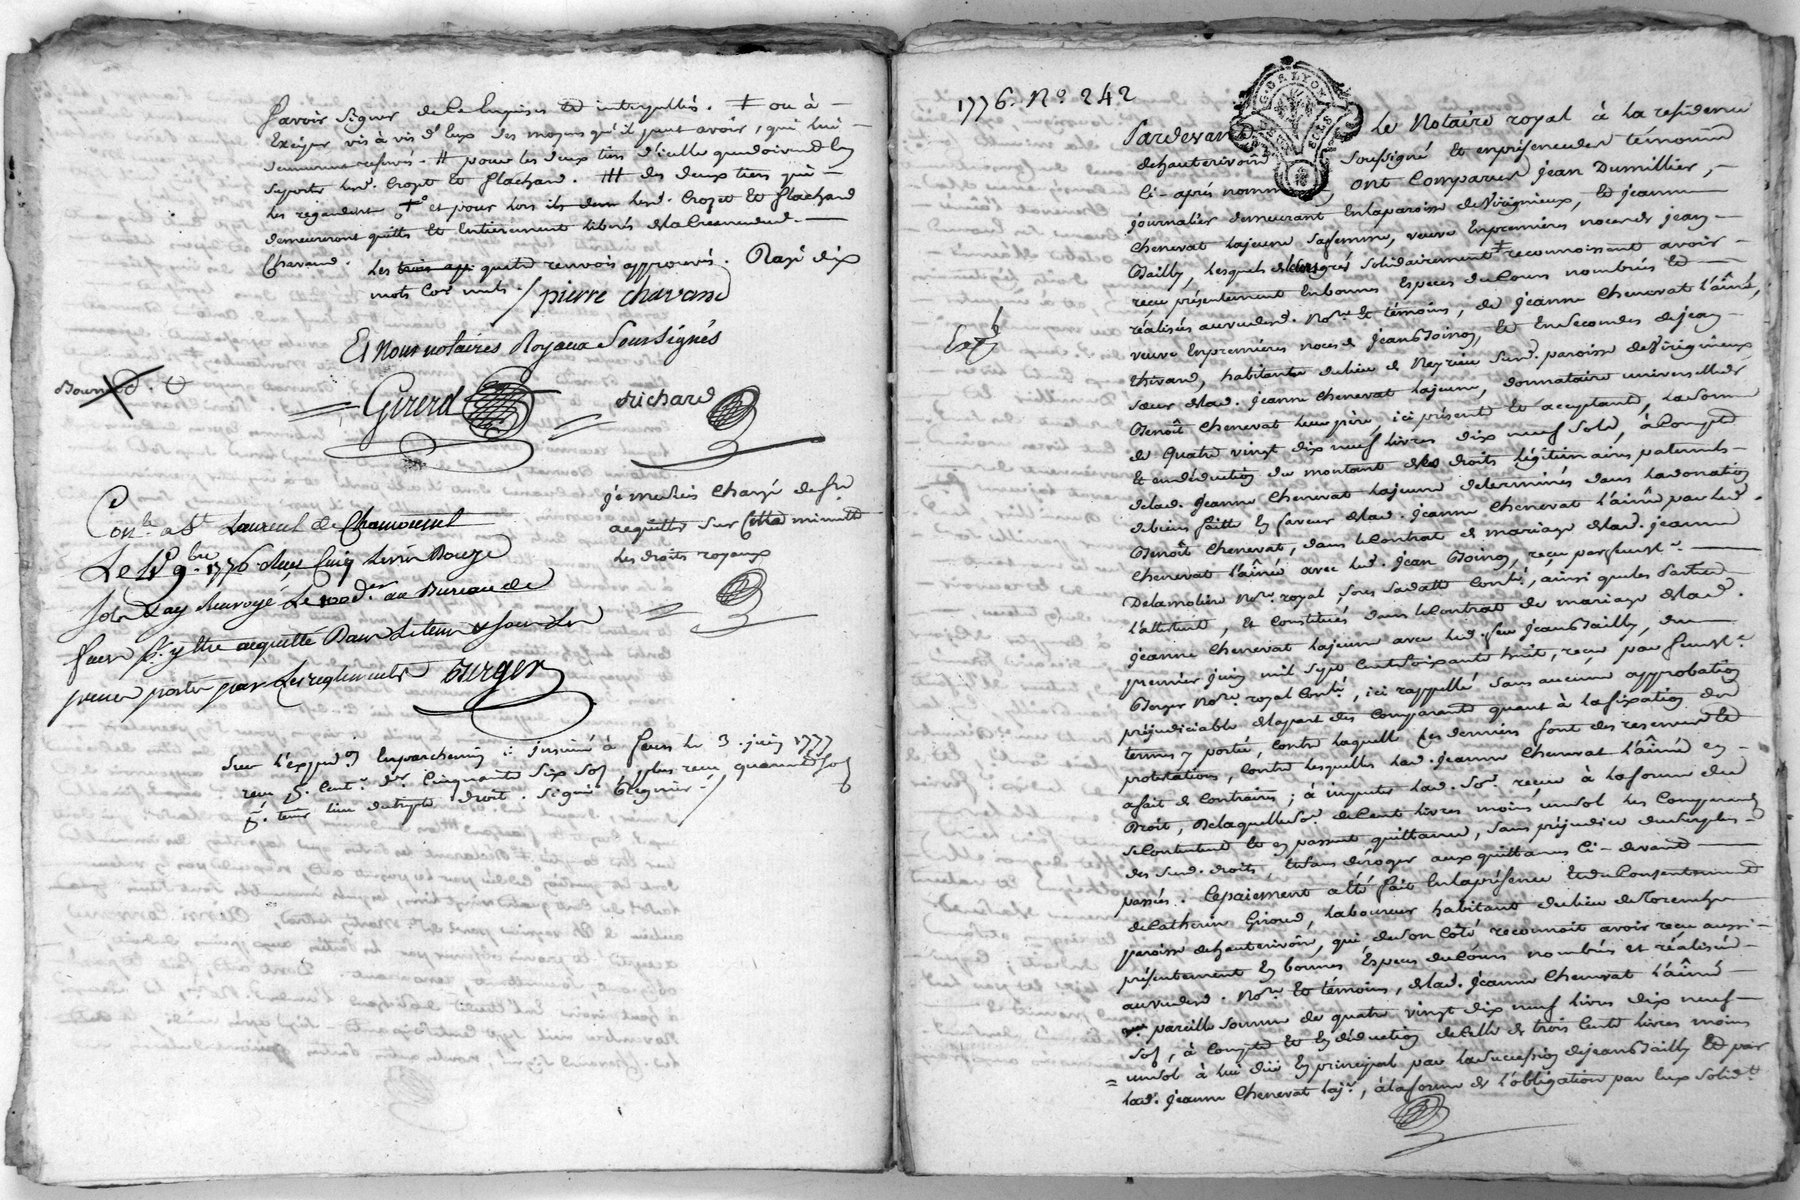 savoir signer de ce enquises et interpellés. ou à
Exiger vis à vis d'Eux des moyens qu'il peut avoir, qui lui
demeurent reservés. # pour les deux tiers d'icelle que doivent En
Suporter lesd. Crozet et flachard. ### des deux tiers qui
les regardent et pour lors ils lesd. Crozet et flachard
demeureront quitte et Entièrement libérés
Chavand. Les trois quatre renvois approuvés. Rayé dix
mots Com nuls. / pierre chavand
Et Nous notaires Royaux Soussignés
Girerd richard
je me suis chargé de
acquitter sur Cette minutte
les droits royaux
Con.lé a St Laurent de Chamousset
Le 9.bre 1776. Reçu Cinq Livres Douze
Sols Lay Renvoyé Le 100.d.er au Bureau de
feurs p.r y être acquitté Dans le tems & sous les
peines portés par Les reglements Berger
Sur l'exped.on En parchemin : insinué à feurs le 3. juin 1777
reçu p.r Cent.e d.er Cinquante Six Sols plus reçu quarante Sols
p.r tenir lieu de triple droit. Signé
1776. N.o 242
G. DE LYON
Pardevant le Notaire royal à la résidence
de hauterivoire Soussigné et en présence des témoins
Ci-après nommés, ont Comparus Jean Dumillier,
journalier demeurant En la paroisse de Virigneux, et jeanne
Chenevat la jeune sa femme, veuve En premières noces de jean
Bailly, Lesquels de leurs grés solidairement reconnoissent avoir
reçu présentement En bonnes Especes du Cours nombrées et
réalisées au vu dud. No.re et témoins, de jeanne Chenevat l'aînée,
veuve En premières noces de jean Poinos, et En Secondes de jean
Thevard, habitante du lieu de Neyrieu Sud. paroisse de Virigneux
Sœur de lad. jeanne Chenevat la jeune, donnataire universelle de
Benoît Chenevat leur père, ici présente et acceptante, la somme
de quatre vingt dix neuf livres dix neuf sols, à Compte
Et en déduction du montant des droits légitimaires paternels
de lad. jeanne Chenevat la jeune déterminés dans la donation
de biens faitte En faveur de lad. jeanne Chenevat l'aînée par led.
Benoît Chenevat, dans le Contrat de mariage de lad. jeanne
Chenevat l'aînée avec led. jean Poinos, reçu par feu M.e
Delamolière No.re royal sous sa datte Contr.lé, ainsi que les Parties
l'attestent, et Constitués dans le Contrat de mariage de lad.
jeanne Chenevat la jeune avec led. feu jean Bailly, du
premier juin mil sept Cent soixante huit, reçu par feu M.e
Berger No.re royal Contr.lé, ici rappellé sans aucune approbation
préjudiciable de la part des Comparants quant à la fixation des
termes y portés, Contre laquelle Ces derniers font des réserves et
protestations, Contre lesquelles lad. jeanne Chenevat l'aînée En
a fait de Contraires; à imputer lad. So.e reçue à la forme du
Droit, De laquelle so.e de Cent livres moins un sol les Comparants
se Contentent et En passent quittance, sans préjudice du surplus
des Susd. droits, et sans déroger aux quittances Ci-devant
passées. Ce paiement a été fait En la présence et du Consentement
de Catherin Giroud, laboureur habitant du lieu de Toranche
paroisse de hauterivoire, qui, de son Côté reconnoit avoir reçu aussi
présentement En bonnes Especes du Cours nombrées et réalisées
au vu dud. No.re Et témoins, de lad. jeanne Chenevat l'aînée
pareille Somme de quatre vingt dix neuf livres dix neuf
sols, à Compte Et En déduction de Celle de trois Cents livres moins
un sol à lui düe En principal par la succession de jean Bailly Et par
lad. jeanne Chenevat la j.e, à la forme de l'obligation par Eux solid.t